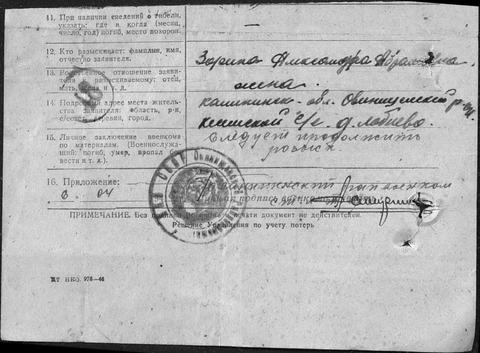 11. При наличии сведений о гибели,
указать: где и когда (месяц,
число, год) погиб, место похорон.
12. Кто разыскивает: фамилия, имя,
отчество заявителя.
Зорина Александра Абрамовна.
13. Родственное отношение заяви-
теля к разыскиваемому: отец,
мать, жена и т. д.
жена.
14. Подробный адрес места житель-
ства заявителя: область, р-н,
с/совет, деревня, город.
калининск. обл. Овинищенский р-н
Кесемской с/с д.
15. Личное заключение военкома
по материалам. (Военнослужа-
щий: погиб, умер, пропал без
вести и т. д.).
Следует продолжить
розыск
16. Приложение:
райвоенком
подпись
ПРИМЕЧАНИЕ. Без печати документ не действителен.
Решение Управления по учету потерь
978—46